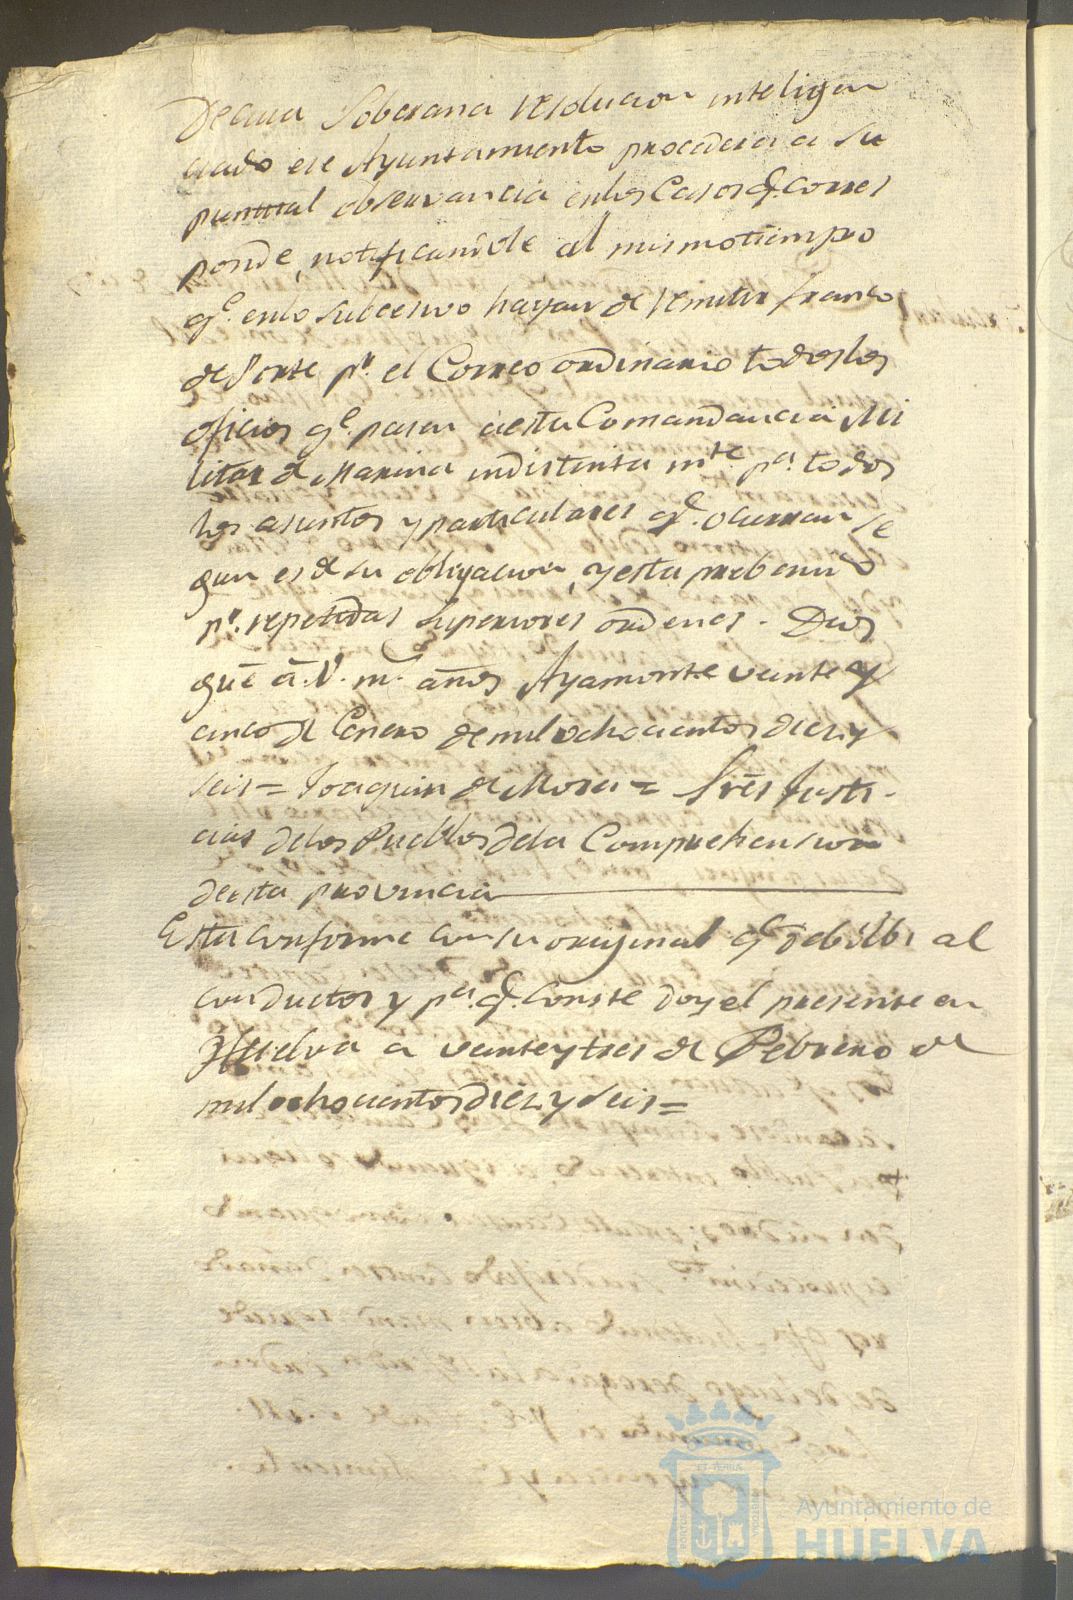 De cuia Soberana resolucion inteligen
ciado ese Ayuntamiento procederá a su
puntual observancia en los Casos q.e corres
ponde, notificandole al mismo tiempo
q.e en lo subcesivo hayan de remitir franco
de Porte p.r el Correo ordinario todos los
oficios q.e pasen a esta Comandancia Mi
litar de Marina indistintam.te p.a todos
los asuntos y particulares q.e ocurran se
gun es de su obligacion, y esta prebenido
p.r repetidas Superiores ordenes. Dios
gue á V. m.s años Ayamonte veinte y
cinco de Enero de mil ochocientos diez y
seis = Joaquin de Mora = Sres Justi
cias de los Pueblos de la Comprehension
de esta provincia
Esta conforme con su original q.e debolbi al
conductor y p.a q.e Conste doy el presente en
Huelva a veinte y tres de Febrero de
mil ochocientos diez y seis =
Ayuntamiento de
HUELVA